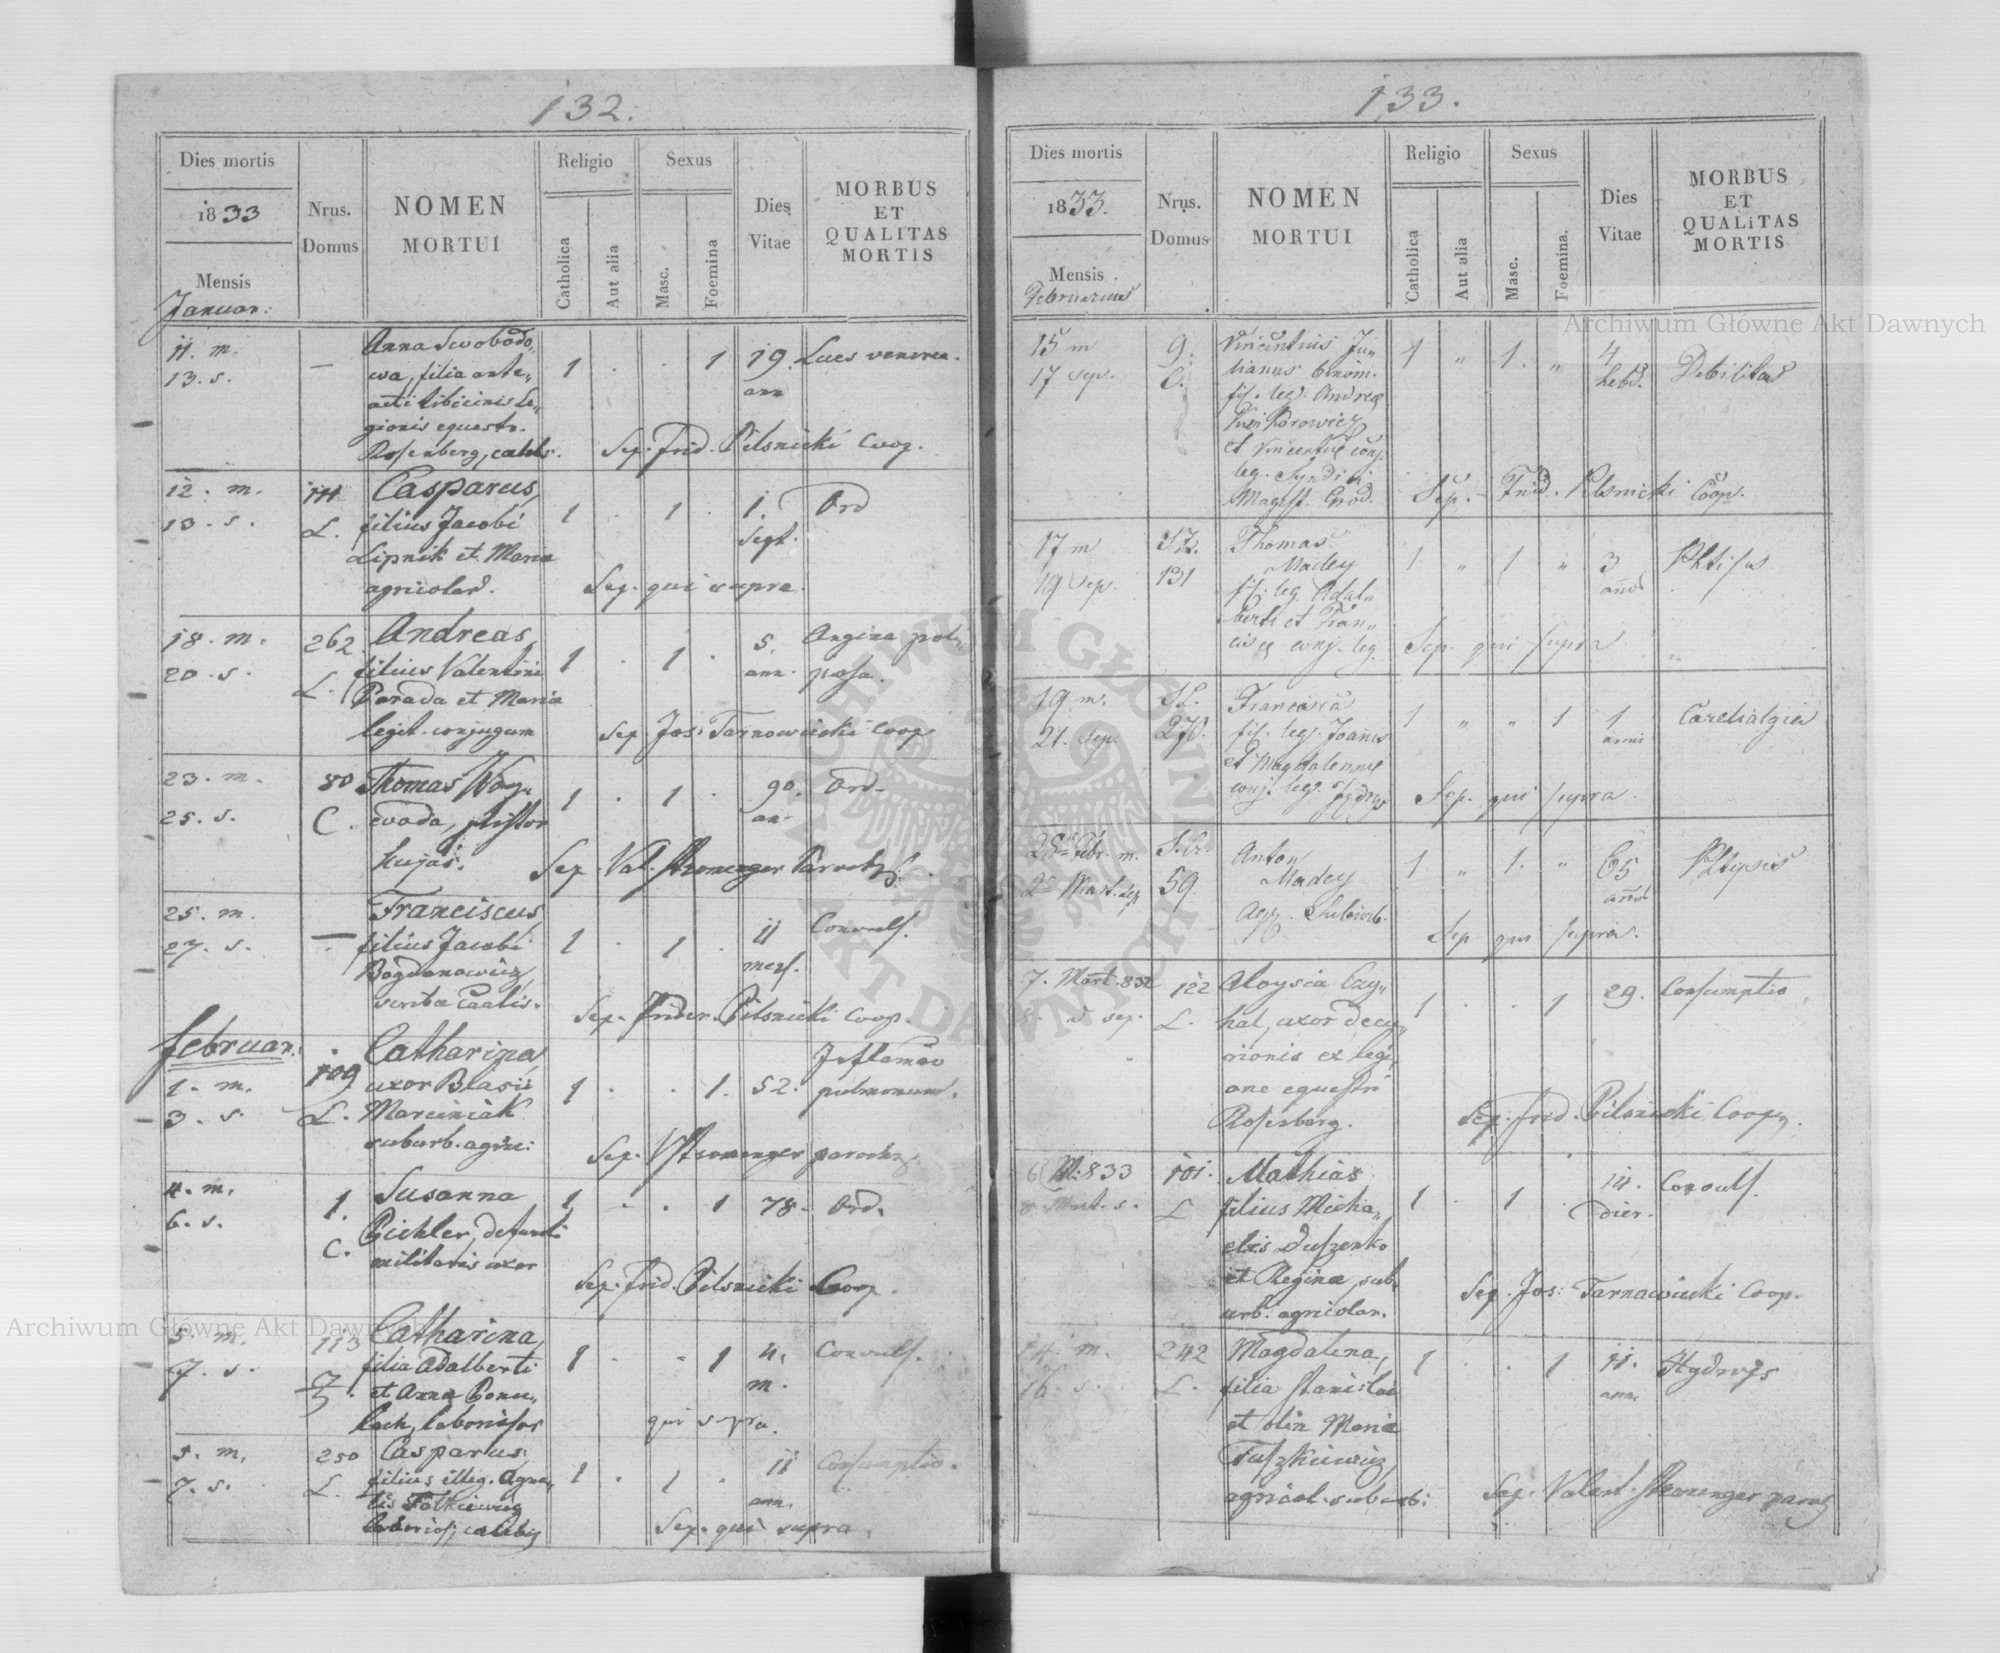 132.
Dies mortis
1833
Mensis
Januar:
Nrus.
Domus
NOMEN
MORTUI
Religio
Catholica
Aut alia
Sexus
Masc.
Foemina
Dies
Vitae
MORBUS
ET
QUALITAS
MORTIS
11. m. — Anna Swobodo„ 1 . . 1 19. Lues venerea.
13. s. wa, filia ante„ ann
acti tibicinis Le„
gionis equestr.
Rosenberg, caelebs. Sep: Frid. Pilsnicki Coop.
12. m. 111 Casparus, 1 . 1 . 1. Ord
13. s. L. filius Jacobi Sept.
Lipnik et Maria
agricolar. Sep. qui supra.
18. m. 262. Andreas, 1 . 1 . 5. Angina poli„
20. s. L. filius Valentini ann. posa.
Porada et Maria
legit. conjugum Sep. Jos: Tarnawiecki Coop
23. m. 80 Thomas Woy„ 1 . 1 . 90. Ord.
25. s. C. evoda, pistor an.
hujas. Sep. Val. Stromenger Paroch.
25. m. — Franciscus, 1 . 1 . 11 Convuls.
27. s. filius Jacobi mens.
Bogdanowicz,
scriba
Sep. Frider. Pilsnicki Coop.
Februar.
1. m. 109 Catharina, 1 . . 1. 52. Inflamao
3. s. L. uxor Blasii pulmonum.
Marciniak
suburb. agric: Sep. V Stromenger paroch.
4. m. 1. Susanna 1 . . 1 78. Ord.
6. s. C. Pichler, defuncti
militaris uxor
Sep: Frid. Pilsnicki Coop.
5. m. 113 Catharina, 1 . . 1 4. Convuls.
7. s. filia Adalberti m.
et Anna
qui supra.
5. m. 250 Casparus, 1 . 1 . 11 Consumptio.
7. s. L. filius illeg. Agne„ ann.
tis
Sep. qui supra.
133.
Dies mortis
1833.
Mensis
Februarius
Nrus.
Domus
NOMEN
MORTUI
Religio
Catholica
Aut alia
Sexus
Masc.
Foemina.
Dies
Vitae
MORBUS
ET
QUALITAS
MORTIS
15 m 9. Vincentius Ju„ 1 „ 1. „ 4 Debilitas
17 sep. C. lianus binom. hebd.
fil. leg. Andreæ
et Vincentiæ conj.
leg. Syndici
Magist. Grod. Sep. Frid. Pilsnicki Coop.
17 m Thomas 1 „ 1 „ 3 Phtisis
19 Sep. 131 Madey
fil. leg. Adal„
berti et Fran„
ciscæ conj. leg. Sep. qui supra
19 m. Francisca 1 „ „ 1 1 Cardialgia
21. Sep. 270. fil. leg. Joannis anni
et Magdalennæ
conj. leg. Sep. qui supra.
28 Febr. m. Anton 1 „ 1. „ 65 Phtysis
2 Mart. sep 59. Madey
Agr. Suburb.
Sep qui supra.
7. Mart. 833 122 Aloysia Czy„ 1 . . 1 29. Consumptio
sep. L. hal, uxor decu„
rionis ex legi„
one equestri
Rosenberg. Sep: Frid. Pilsnicki Coop.
6 M: 833 101. Mathias 1 . 1 . 14. Convuls.
8 Mart. s. L filius Micha„ dier.
elis Duszenko
et Regina sub„
urb: agricolar. Sep. Jos: Tarnawiecki Coop.
14. m. 242 Magdalena, 1 . . 1 11. Hydrops
16. s. L. filia Stanislai ann.
et olim Maria
Tuszkiewicz,
agricol. suburb: Sep: Valent. Stromenger paroch
Archiwum Główne Akt Dawnych
Archiwum Główne Akt Dawnych
ARCHIWUM GŁÓWNE AKT DAWNYCH